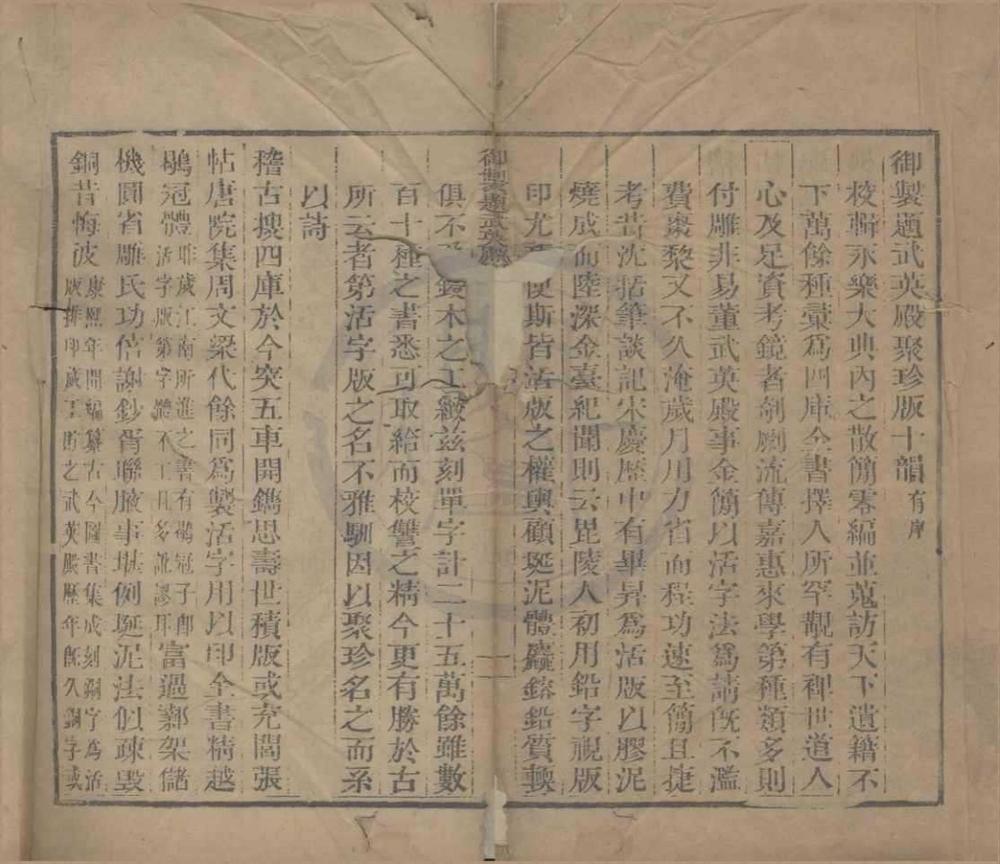 御製題武英殿聚珍版十韻有序
校輯永樂大典內之散簡零編並蒐訪天下遺籍不
下萬餘種彙爲四庫全書擇人所罕覯有裨世道人
心及足資考鏡者剞劂流傳嘉惠來學第種類多則
付雕非易董武英殿事金簡以活字法爲請旣不濫
費棗棃又不久淹歲月用力省而程功速至簡且捷
考昔沈括筆談記宋慶歷中有畢昇爲活版以膠泥
燒成而陸深金臺紀聞則云毘陵人初用鉛字視版
印尤 便斯皆活版之權輿顧埏泥體麤鎔鉛質輭
御製題武英殿
俱不 鋟木之工緻茲刻單字計二十五萬餘雖數
百十種之書悉可取給而校讐之精今更有勝於古
所云者第活字版之名不雅馴因以聚珍名之而系
以詩
稽古搜四庫於今突五車開鐫思壽世積版或充閭張
帖唐院集周文梁代餘同爲製活字用以印全書精越
鶡冠體昨歲江南所進之書有鶡冠子卽活字版第字體不工且多訛謬耳富過鄴架儲
機圓省雕氏功倍謝鈔胥聯腋事堪例埏泥法似疎毀
銅昔悔彼康熙年間編纂古今圖書集成刻銅字爲活版排印蕆工貯之武英殿歷年旣久銅字或